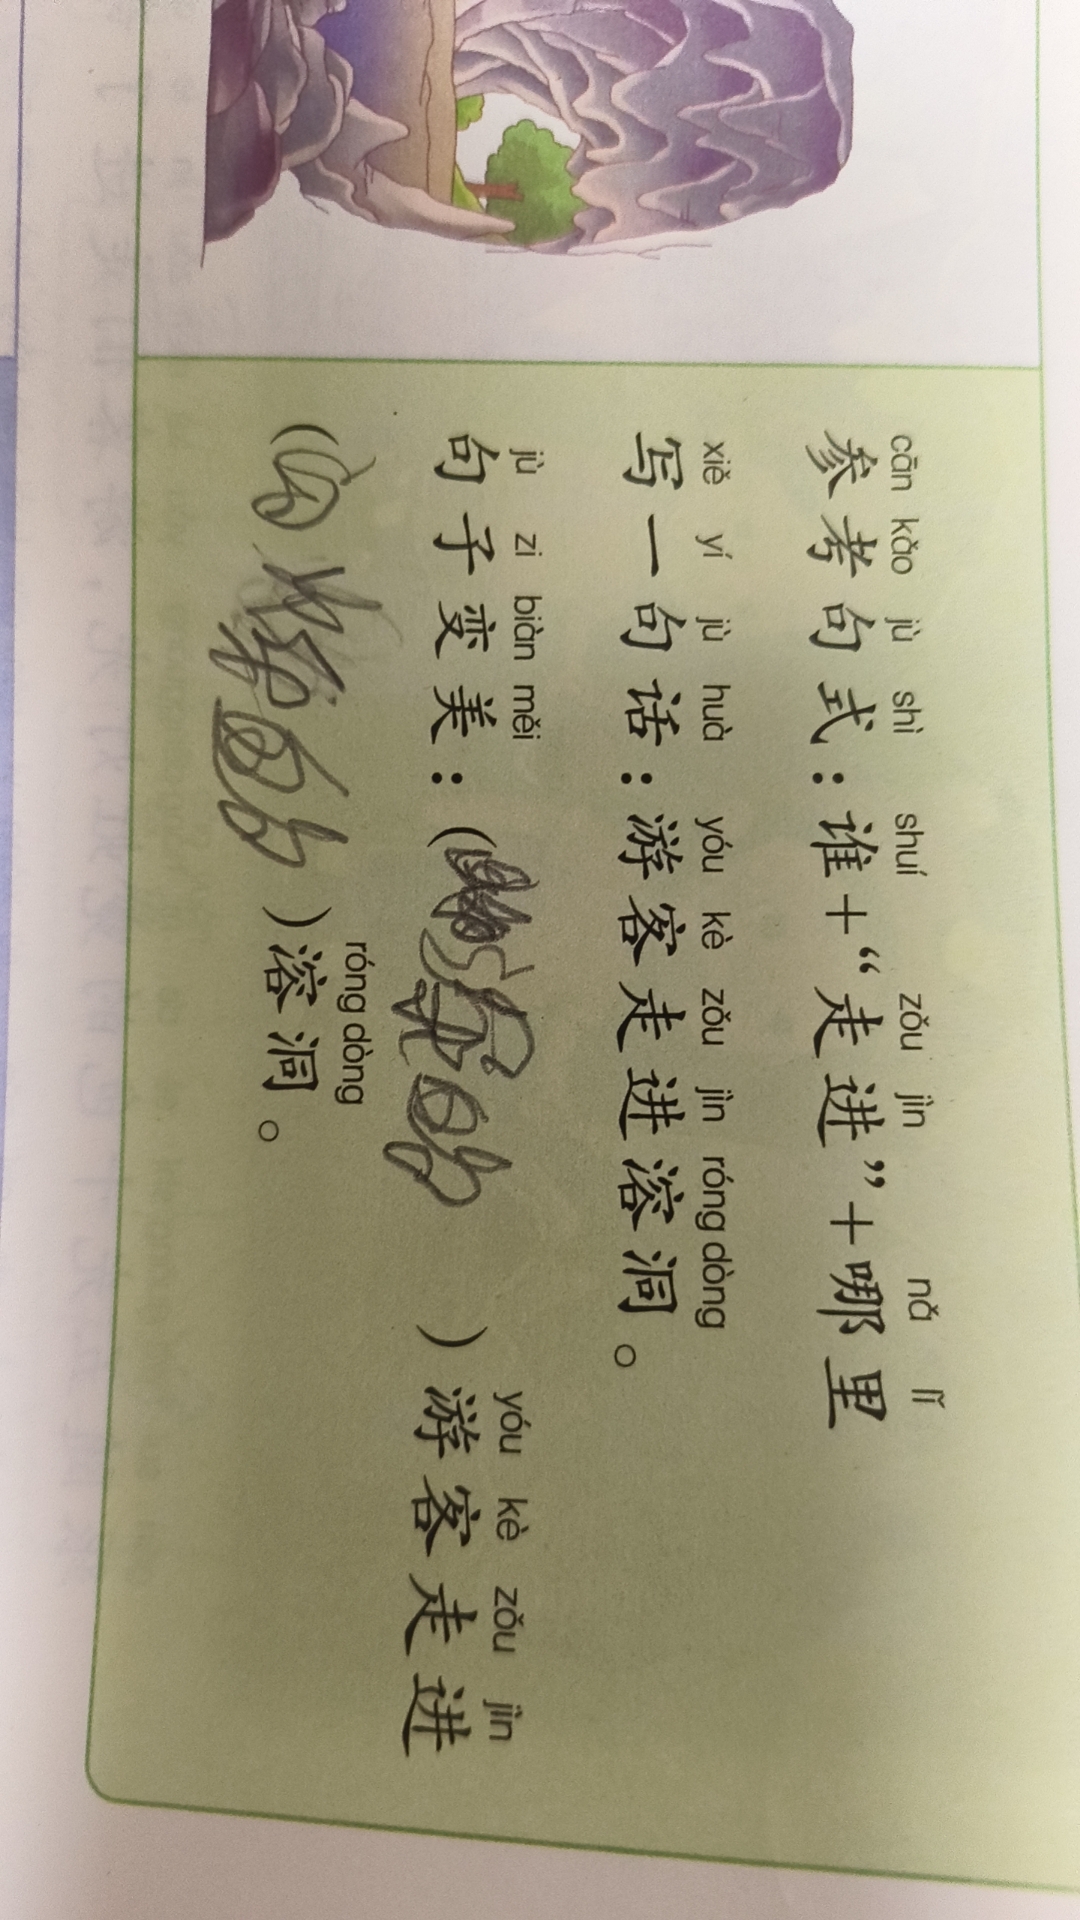 cān kǎo jù shì shuí zǒu jìn nǎ lǐ
参考句式：谁+“走进”+哪里
xiě yí jù huà yóu kè zǒu jìn róng dòng
写一句话：游客走进溶洞。
jù zi biàn měi yóu kè zǒu jìn
句子变美：( 的 ) 游客走进
róng dòng
( 的 ) 溶洞。